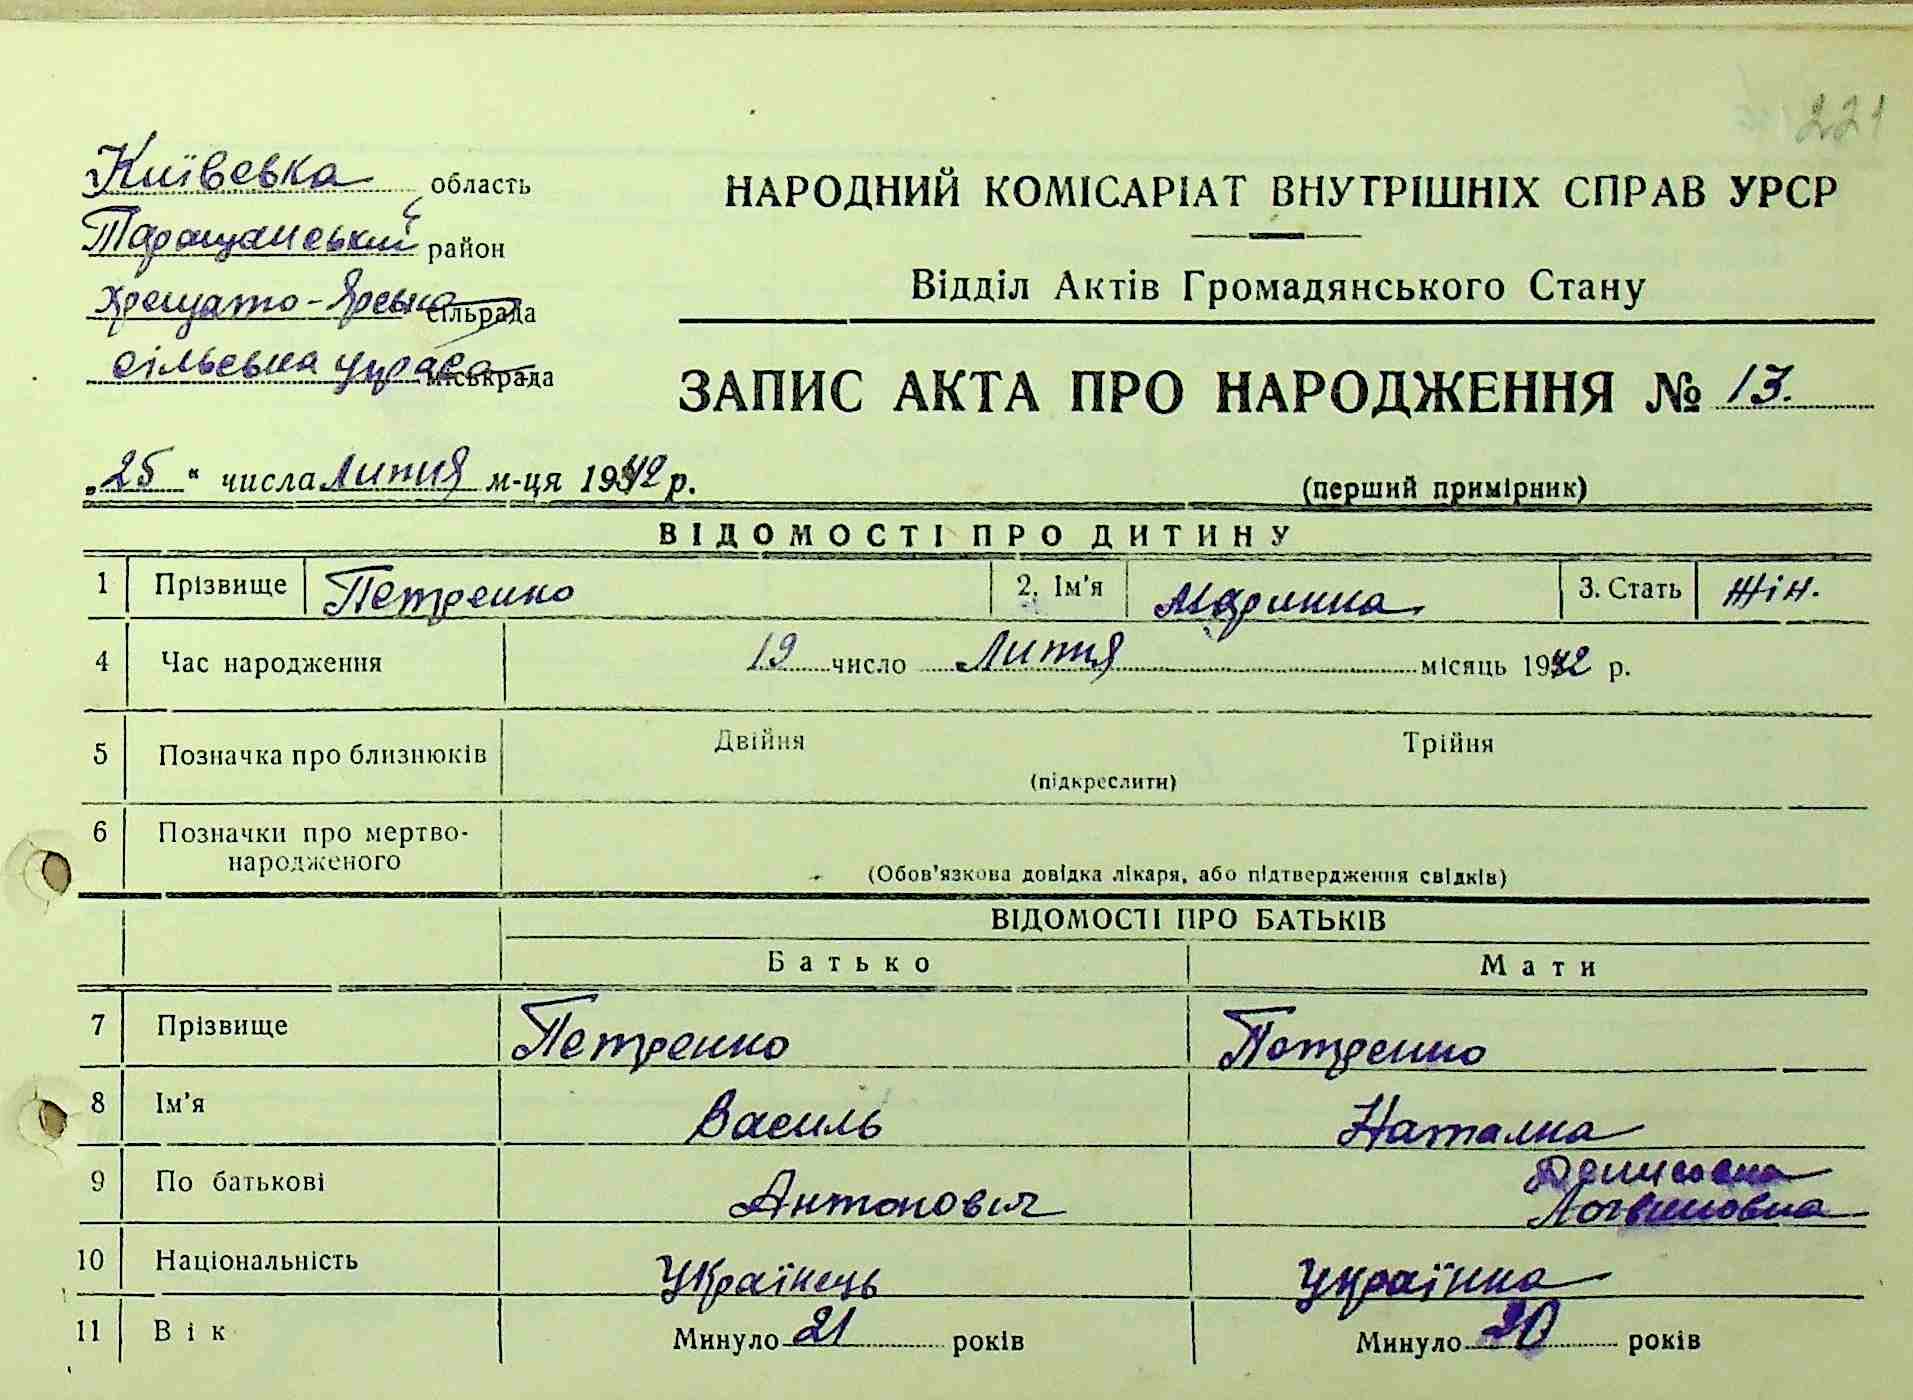 221
Київська область
Таращанський район
Хрещато-Ярська сільрада
сільська управа міськрада
НАРОДНИЙ КОМІСАРІАТ ВНУТРІШНІХ СПРАВ УРСР
Відділ Актів Громадянського Стану
ЗАПИС АКТА ПРО НАРОДЖЕННЯ № 13.
„25“ числа Липня м-ця 1942 р.
(перший примірник)
ВІДОМОСТІ ПРО ДИТИНУ
1 Прізвище Петренко 2. Ім'я Маринка 3. Стать жін.
4 Час народження 19 число Липня місяць 1942 р.
5 Позначка про близнюків Двійня Трійня
(підкреслити)
6 Позначки про мертво-
народженого
(Обов'язкова довідка лікаря, або підтвердження свідків)
ВІДОМОСТІ ПРО БАТЬКІВ
Батько Мати
7 Прізвище Петренко Петренко
8 Ім'я Василь Наталка
9 По батькові Антонович Денисовна
Логвиновна
10 Національність Українець Українка
11 Вік Минуло 21 років Минуло 20 років